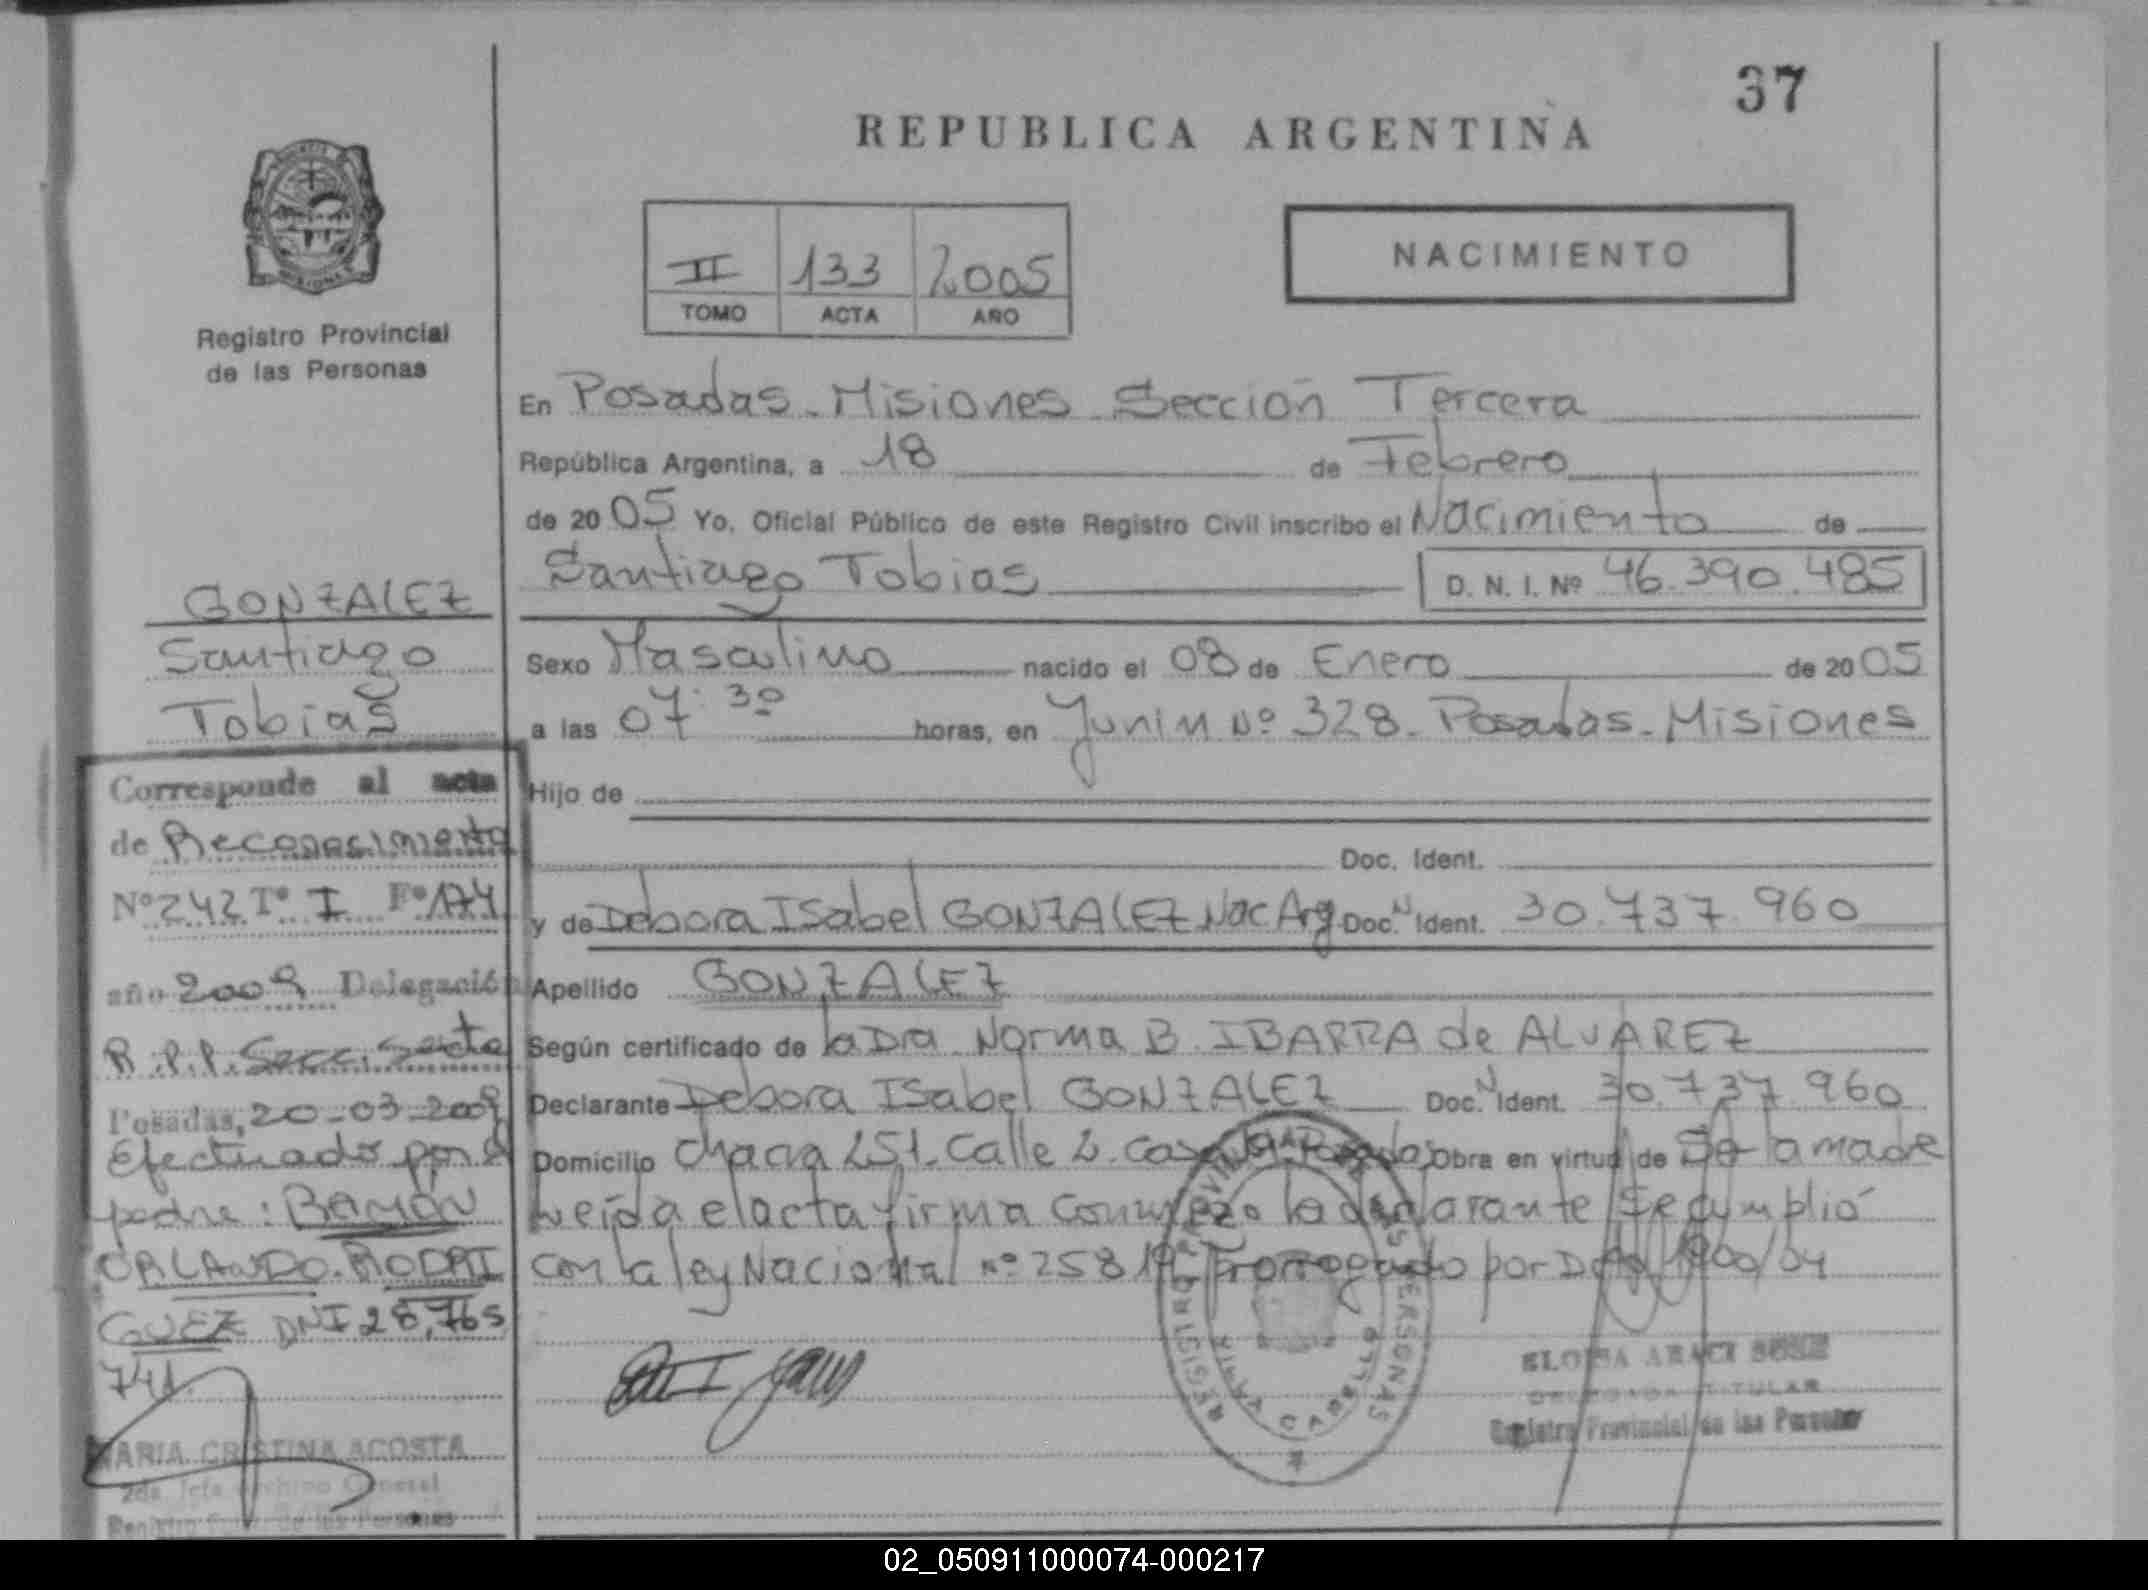 37
REPUBLICA ARGENTINA
II 133 2005
TOMO ACTA AÑO
NACIMIENTO
Registro Provincial
de las Personas
En Posadas - Misiones Sección Tercera
República Argentina, a 18 de Febrero
de 2005 Yo, Oficial Público de este Registro Civil inscribo el Nacimiento de
Santiago Tobias D. N. I. Nº 46.390.485
Sexo Masculino nacido el 08 de Enero de 2005
a las 07:30 horas, en Junin Nº 328 - Posadas - Misiones
Hijo de
Doc. Ident.
y de Debora Isabel GONZALEZ Nac Arg Doc. N Ident. 30.737.960
Apellido GONZALEZ
Según certificado de la Dra Norma B. IBARRA de ALVAREZ
Declarante Debora Isabel GONZALEZ Doc. N Ident. 30.737.960
Domicilio Chacra 251. Calle 2. Casa Obra en virtud de la madre
Leída el acta firma conmigo la declarante Se cumplió
con la ley Nacional nº 25819 Prorrogado por Dcto 1900/04
GONZALEZ
Santiago
Tobias
Corresponde al acta
de Reconocimiento
Nº 242 Tº I Fº 174
año 2009 Delegación
R.P.P. Secc. Sexta
Posadas, 20-03-2009
Efectuado por el
padre: RAMON
ORLANDO RODRI
GUEZ DNI 28,765
741.
MARIA CRISTINA ACOSTA
2da. Jefa Archivo General
Registro de las Personas
REGISTRO PROVINCIAL DE LAS PERSONAS
VILLA CABELLO
ELOISA ARACI
DELEGADA TITULAR
Registro Provincial de las Personas
02_050911000074-000217